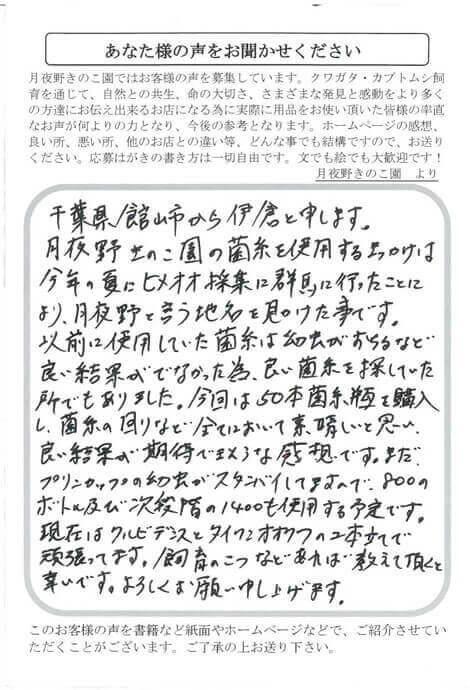 あなた様の声をお聞かせください
月夜野きのこ園ではお客様の声を募集しています。クワガタ・カブトムシ飼
育を通じて、自然との共生、命の大切さ、さまざまな発見と感動をより多く
の方達にお伝え出来るお店になる為に実際に用品をお使い頂いた皆様の率直
なお声が何よりの力となり、今後の参考となります。ホームページの感想、
良い所、悪い所、他のお店との違い等、どんな事でも結構ですので、お送り
ください。応募はがきの書き方は一切自由です。文でも絵でも大歓迎です！
月夜野きのこ園　より
千葉県館山市から伊倉と申します。
月夜野きのこ園の菌糸を使用するきっかけは
今年の夏にヒメオオ採集に群馬に行ったことに
より、月夜野と言う地名を見かけた事です。
以前に使用していた菌糸は幼虫がずらるなど
良い結果がでなかった為、良い菌糸を探していた
所でもありました。今回は50本菌糸瓶を購入
し、菌糸の回りなど全てにおいて素晴しいと思い、
良い結果が期待できそうな感想です。まだ
プリンカップの幼虫がスタンバイしてますので、800の
ボトル及び次段階の1400も使用する予定です。
現在はクルビデンスとタイワンオオクワの2本立で
頑張ってます。飼育のこつなどあれば教えて頂くと
幸いです。よろしくお願い申し上げます。
このお客様の声を書籍など紙面やホームページなどで、ご紹介させてい
ただくことがございます。ご了承の上お送り下さい。